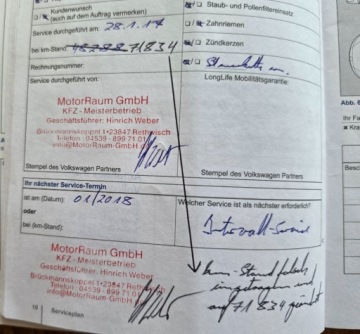 Kundenwunsch
(auch auf dem Auftrag vermerken)
Service durchgeführt am: 28.1.17
bei km-Stand: 71834
Rechnungsnummer:
Service durchgeführt von:
MotorRaum GmbH
KFZ - Meisterbetrieb
Geschäftsführer: Hinrich Weber
Brückmannskoppel 1•23847 Rethwisch
Telefon : 04539 - 899 71 01
Stempel des Volkswagen Partners
Staub- und Pollenfiltereinsatz
Zahnriemen
Zündkerzen
LongLife Mobilitätsgarantie:
Stempel des Volkswagen Partners
Ihr nächster Service-Termin
ist am (Datum): 01/2018
oder
bei (km-Stand):
Welcher Service ist als nächster erforderlich?
Intervall-Service
MotorRaum GmbH
KFZ - Meisterbetrieb
Geschäftsführer: Hinrich Weber
Brückmannskoppel 1•23847 Rethwisch
Telefon : 04539 - 899 71 01
km-Stand falsch
eingetragen und
auf 71834 geändert
Serviceplan
Abb. 6
Ihr Fa
Besc